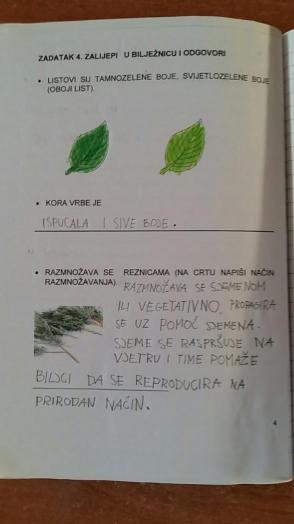 ZADATAK 4. ZALIJEPI U BILJEŽNICU I ODGOVORI
• LISTOVI SU TAMNOZELENE BOJE, SVIJETLOZELENE BOJE
(OBOJI LIST).
• KORA VRBE JE
ISPUCALA I SIVE BOJE.
• RAZMNOŽAVA SE REZNICAMA (NA CRTU NAPIŠI NAČIN
RAZMNOŽAVANJA). RAZMNOŽAVA SE SJEMENOM
ILI VEGETATIVNO, PROPAGIRA
SE UZ POMOĆ SJEMENA.
SJEME SE RASPRŠUJE NA
VJETRU I TIME POMAŽE
BILJCI DA SE REPRODUCIRA NA
PRIRODAN NAČIN.
4